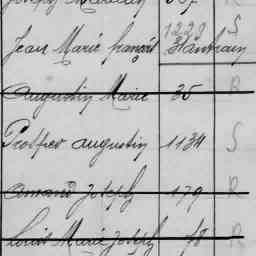 Jean Marie françois 1220 S
Augustin Marie 35 R
Prosper augustin 1134 S
Armand Joseph 179 R
Louis Marie Joseph 18 R